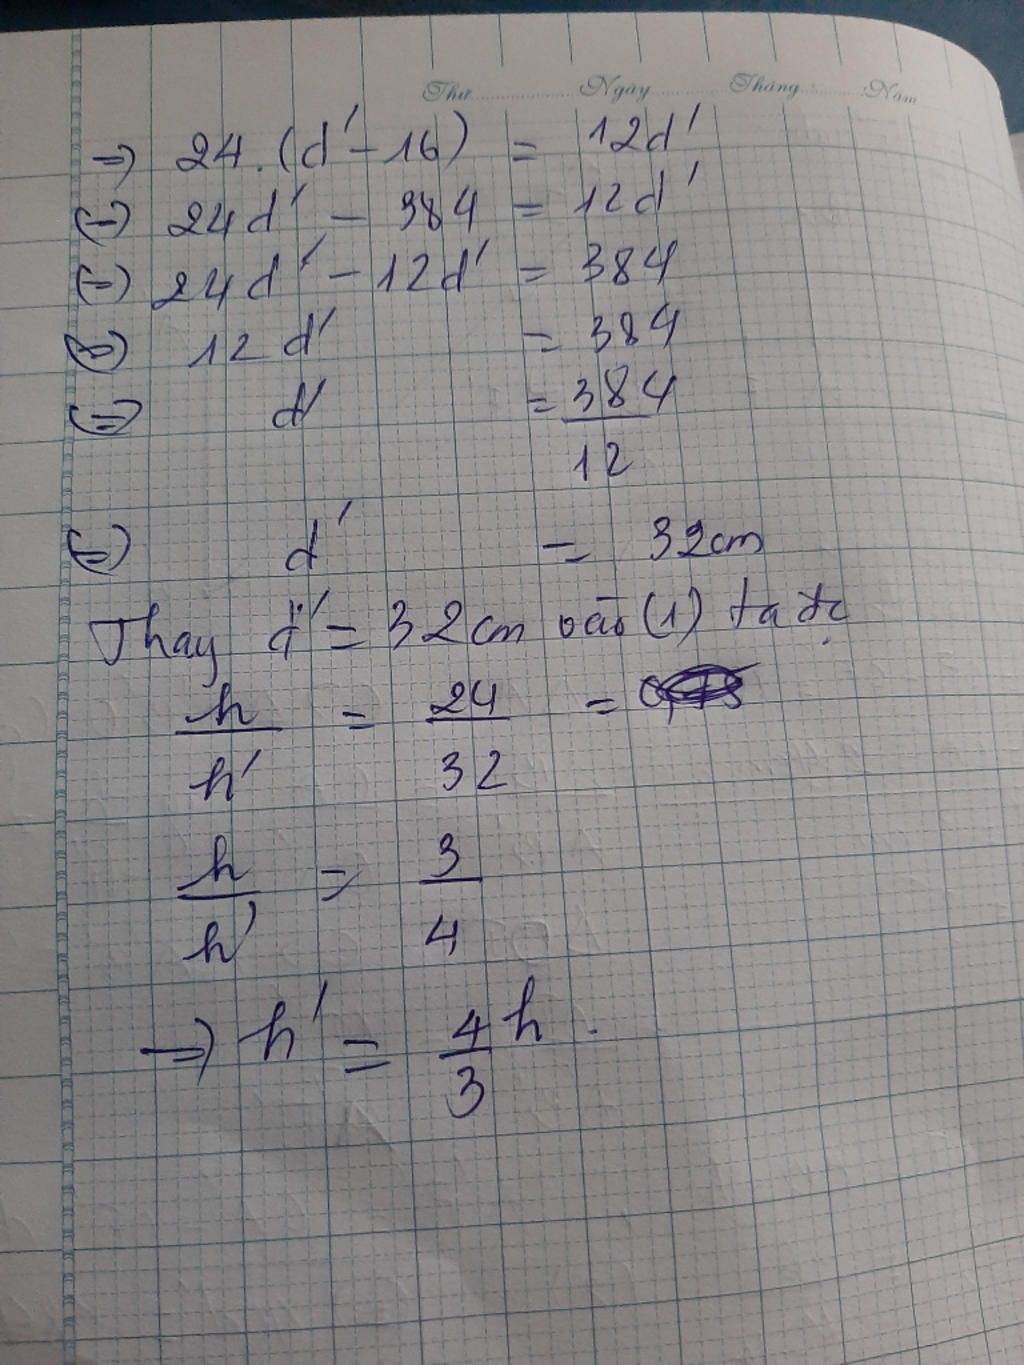 Thứ Ngày Tháng Năm
=> 24.(d' - 16) = 12d'
(=) 24d' - 384 = 12d'
(=) 24d' - 12d' = 384
(=) 12d' = 384
(=) d' = 384
12
(=) d' = 32cm
Thay d' = 32cm vào (1) ta đc
h = 24 =
h' 32
h = 3
h' 4
=> h' = 4 h.
3